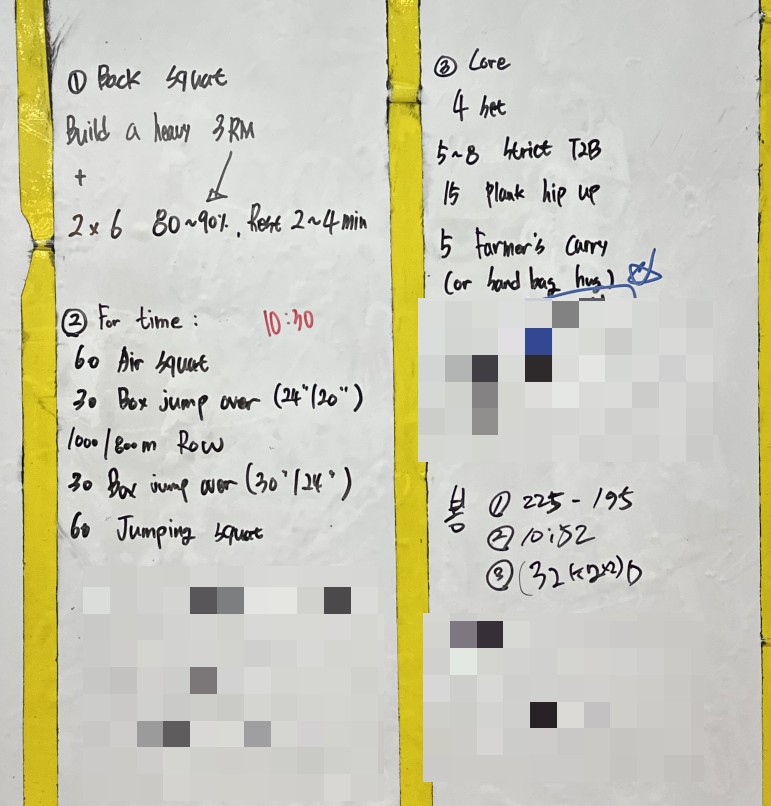 ① Back squat
Build a heavy 3RM
+
2 x 6 80~90%, Rest 2~4 min
② For time : 10:30
60 Air squat
30 Box jump over (24"/20")
1000/800m Row
30 Box jump over (30"/24")
60 Jumping squat
③ Core
4 set
5~8 strict T2B
15 plank hip up
5 Farmer's carry
(or sand bag hug)
봉 ① 225-195
② 10:52
③